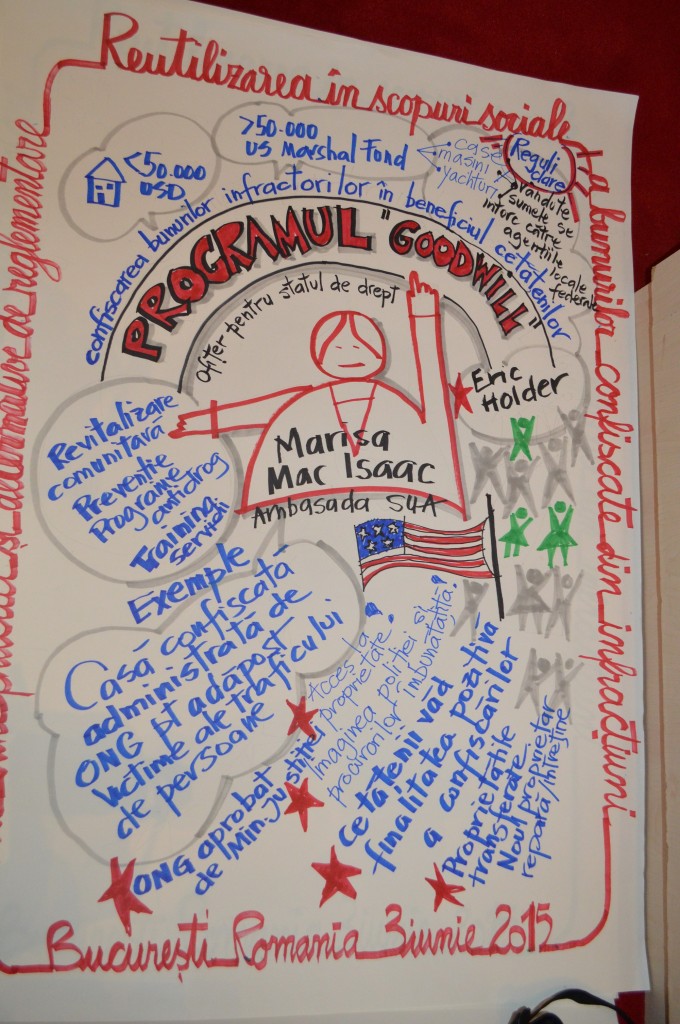 Reutilizarea în scopuri sociale
a bunurilor confiscate din infracțiuni
și alternative de reglementare
<50.000
USD
>50.000
US Marshal Fond
case
masini
yachturi
Reguli
clare
vândute
sumele se
impart către
agențiile
locale
federale
confiscarea bunurilor infractorilor în beneficiul cetățenilor
PROGRAMUL "GOODWILL"
Ofițer pentru statul de drept
Eric
Holder
Marisa
Mac Isaac
Ambasada SUA
Revitalizare
comunitară
Prevenție
Programe
antidrog
Training
servicii
Exemple
Casă confiscată
administrată de
ONG pt adăpost
victime ale traficului
de persoane
ONG aprobat
de Min. justiției
Acces la
proprietate.
Imaginea poliției și
procurorilor îmbunătățită!
Cetățenii văd
finalitatea pozitivă
a confiscărilor
Proprietățile
transferate.
Noul proprietar
repară/întreține
București Romania 3 iunie 2015